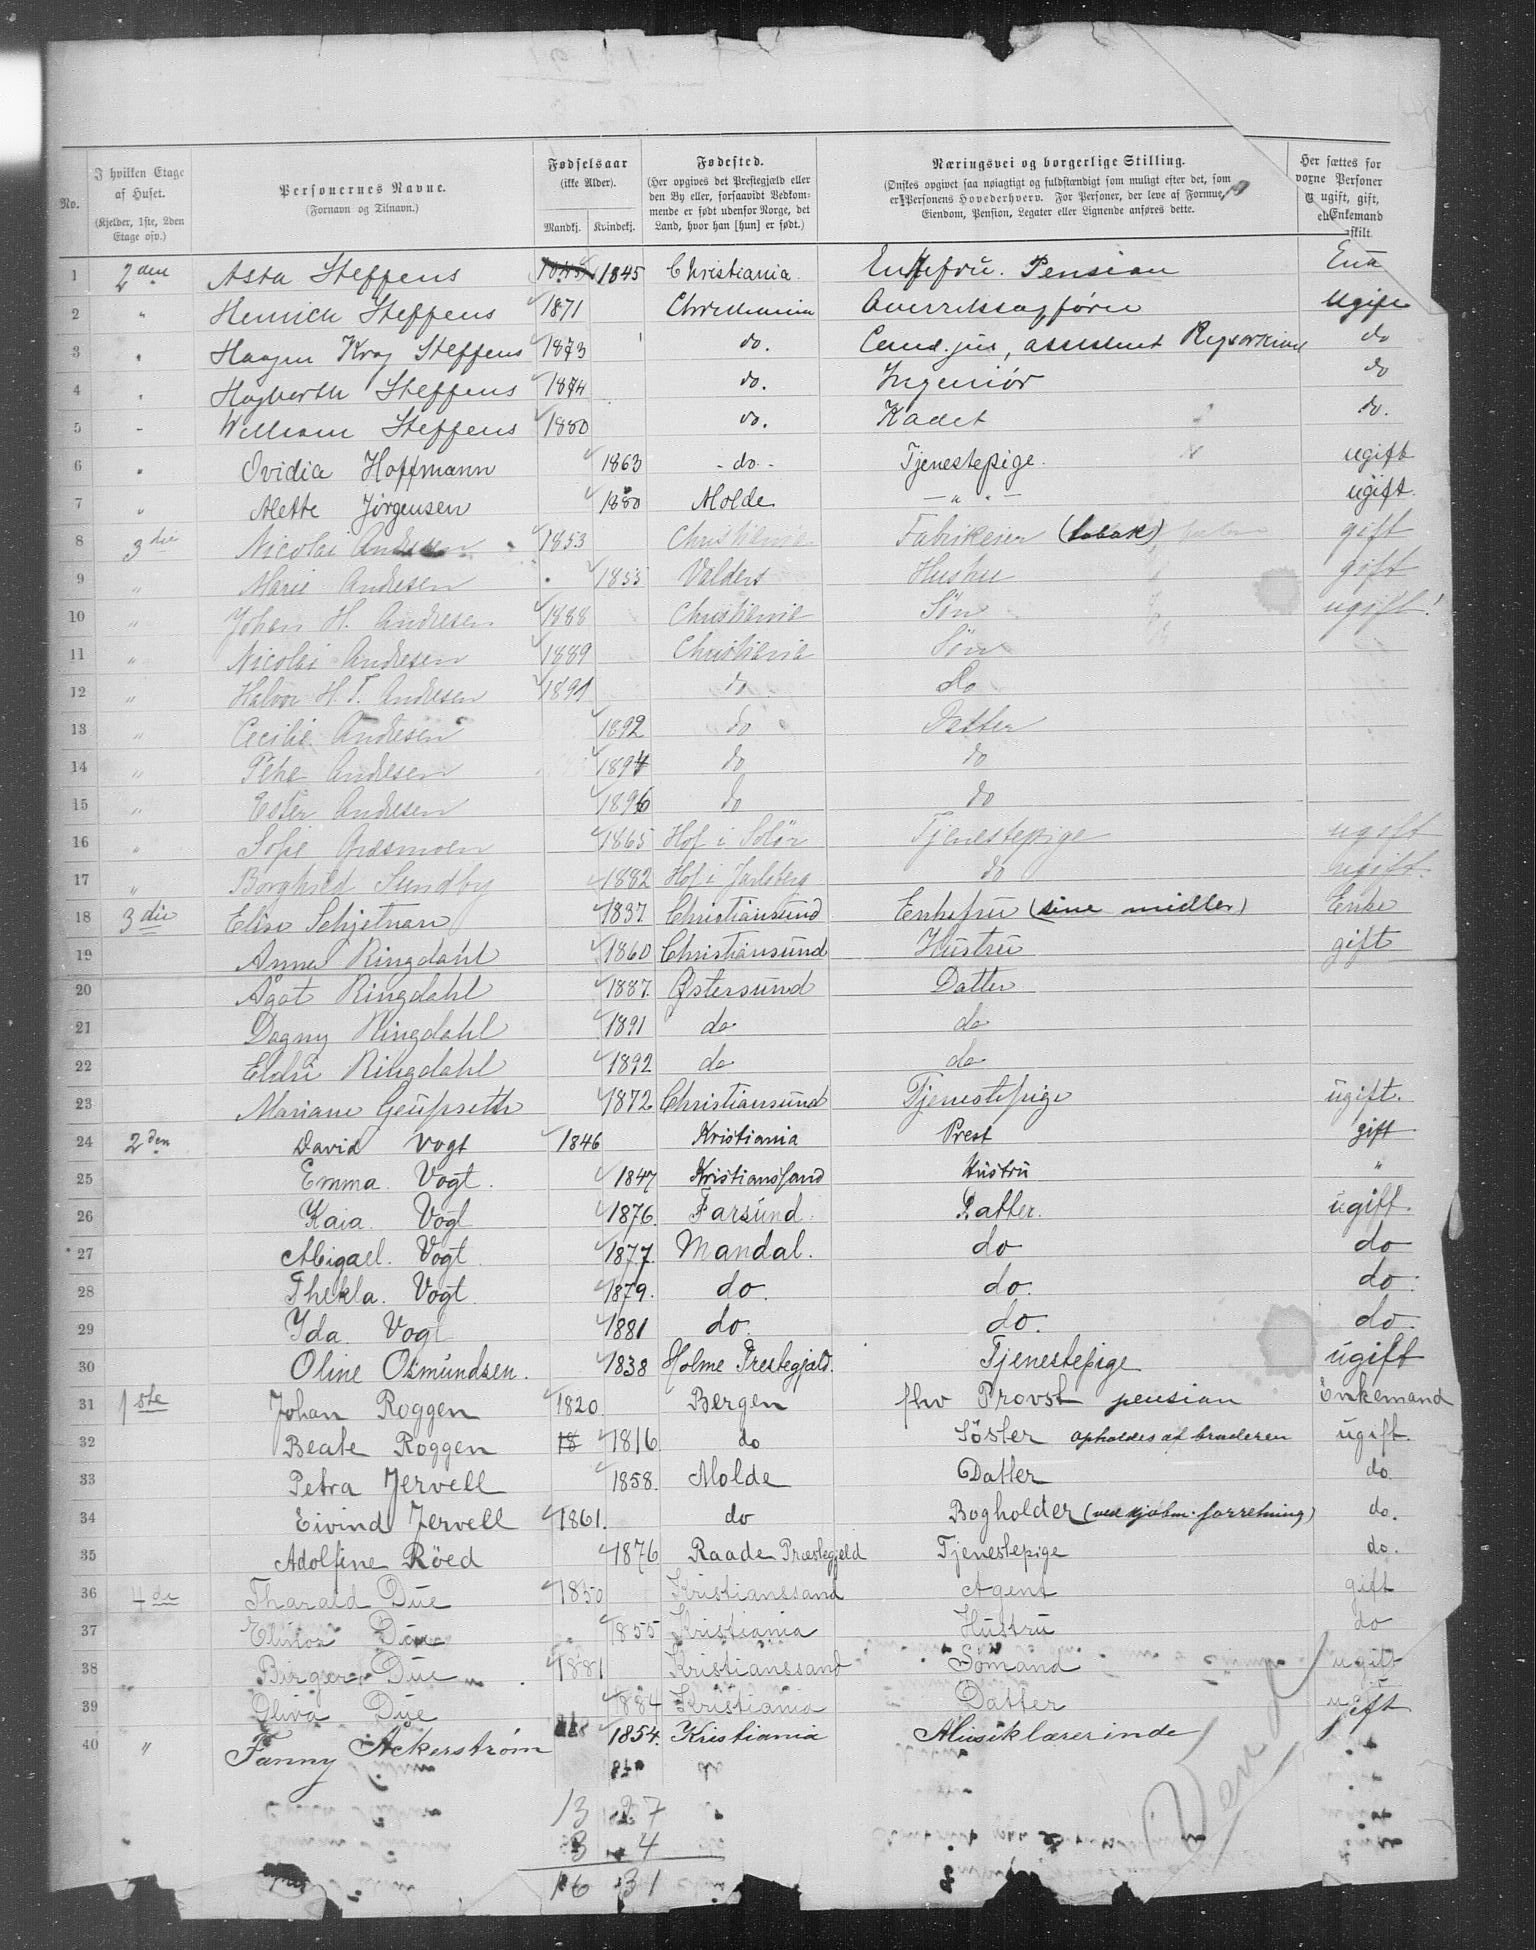 No.
I hvilken Etage af Huset. (Kjelder, 1ste, 2den Etage osv.)
Personernes Navne. (Fornavn og Tilnavn.)
Fødselsaar (ikke Alder). Mandkj. Kvindekj.
Fødested. (Her opgives det Prestegjæld eller den By eller, forsaavidt Vedkommende er født udenfor Norge, det Land, hvor han [hun] er født.)
Næringsvei og borgerlige Stilling. (Ønskes opgivet saa nøiagtigt og fuldstændigt som muligt efter det, som er Personens Hovederhverv. For Personer, der leve af Formue, Eiendom, Pension, Legater eller Lignende anføres dette.
Her sættes for voxne Personer ugift, gift, Enkemand skilt
1 2den Asta Steffens 1845 1845 Christiania Enkefru. Pension
2 " Henrich Steffens 1871 Christiania Overretssagfører Ugift
3 " Haagen Krog Steffens 1873 do. Cand. jur, assistent Rigsarkivet do
4 " Hagbarth Steffens 1874 do. Ingeniør do
5 - William Steffens 1880 do. Kadet do.
6 " Ovidia Hoffmann 1863 - do - Tjenestepige. ugift
7 " Alette Jørgensen 1880 Molde — " — ugift.
8 3die Nicolai Andresen 1853 Christiania Fabrikeier (tobak) gift
9 " Marie Andresen 1855 Valders Hustru gift
10 " Johan H. Andresen 1888 Christiania Søn ugift!
11 " Nicolai Andresen 1889 Christiania Søn
12 " Halvor H. T. Andresen 1891 do Do
13 " Cecilie Andresen 1892 do Datter
14 " Andresen 1894 do do
15 " Ester Andresen 1896 do do
16 " Sofie Græsmoen 1865 Hof i Solør Tjenestepige ugift
17 " Borghild Sundby 1882 Hof i Jarlsberg do ugift.
18 3die Elise Schjetnan 1837 Christiansund Enkefru (sine midler) Enke
19 Anna Ringdahl 1860 Christiansund Hustru gift
20 Ågot Ringdahl 1887. Østersund Datter
21 Dagny Ringdahl 1891 do do
22 Eldri Ringdahl 1892 do do
23 Mariane 1872 Christiansund Tjenestepige ugift.
24 2den David Vogt 1846 Kristiania Prest gift
25 Emma Vogt. 1847 Kristiansand Hustru "
26 Kaia Vogt 1876. Farsund. Datter. ugift.
27 Abigael. Vogt 1877. Mandal. do do
28 Thekla. Vogt. 1879. do. do. do.
29 Ida Vogt 1881 do. do. do.
30 Oline Osmundsen. 1838 Holme Prestegjæld. Tjenestepige ugift
31 1ste Johan Roggen 1820 Bergen fhv Provst pension Enkemand
32 Beate Roggen 18 1816 do Söster opholdes af broderen ugift.
33 Petra Jervell 1858. Molde Datter do.
34 Eivind Jervell 1861. do Bogholder (ved kjøbm. forretning) do.
35 Adolfine Röed 1876 Raade Præstegjeld Tjenestepige do.
36 4de Tharald Due 1850 Kristianssand Agent gift
37 Elinor Due 1855 Kristiania Hustru do
38 Birger Due 1881 Kristianssand Sömand ugift
39 Oliva Due 1884 Kristiania Datter ugift
40 " Fanny Ackerstrøm 1854. Kristiania Musiklærerinde
13 27
3 4
16 31
Vend